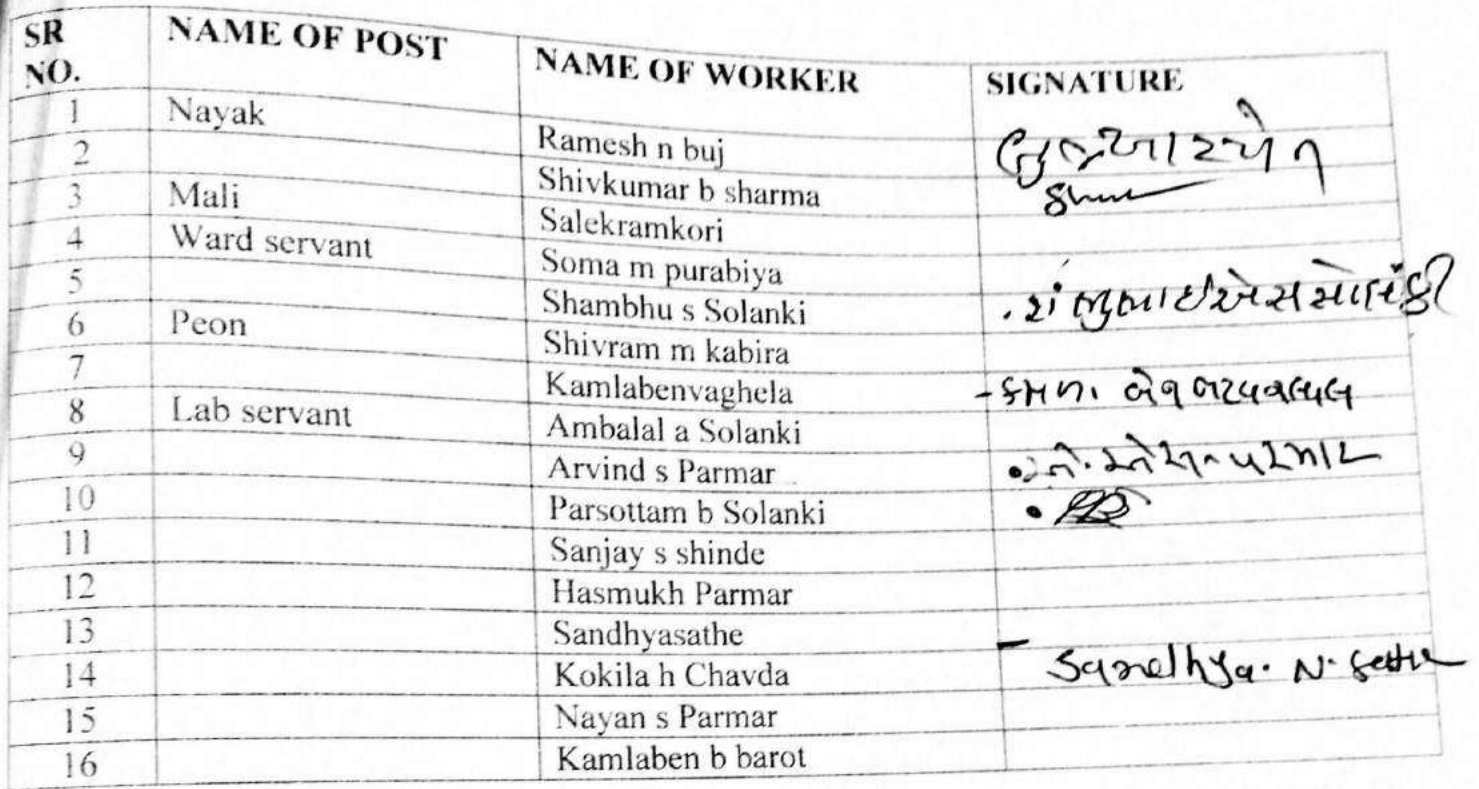 SR NO. NAME OF POST NAME OF WORKER SIGNATURE
1 Nayak Ramesh n buj
2 Shivkumar b sharma
3 Mali Salekramkori
4 Ward servant Soma m purabiya
5 Shambhu s Solanki શંભુભાઇ એસ સોલંકી
6 Peon Shivram m kabira
7 Kamlabenvaghela
8 Lab servant Ambalal a Solanki
9 Arvind s Parmar પરમાર
10 Parsottam b Solanki
11 Sanjay s shinde
12 Hasmukh Parmar
13 Sandhyasathe Sandhya. N.
14 Kokila h Chavda
15 Nayan s Parmar
16 Kamlaben b barot